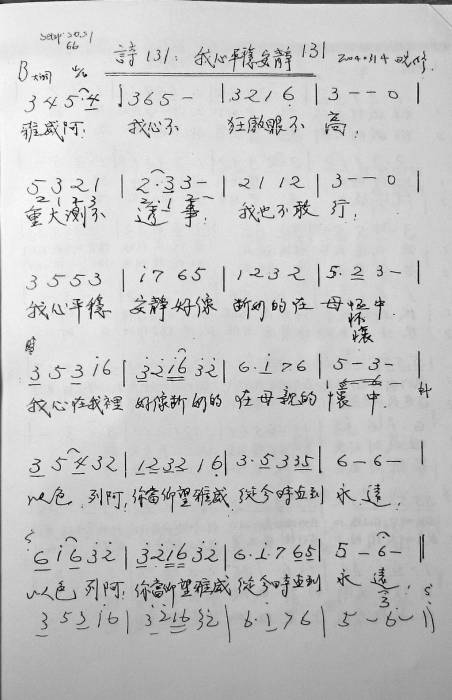 setup: 20.21
66
詩131: 我心平穩安靜 131
B大調 4/4
3 4 5·4 | 3 6 5 - | 3 2 1 6 | 3 - - 0 |
雅威阿, 我心不 狂傲眼不 高,
5 3 2 1 | 2·3 3 - | 2 1 1 2 | 3 - - 0 |
重大測不 透事, 我也不敢 行,
3 5 5 3 | i 7 6 5 | 1 2 3 2 | 5·2 3 - |
我心平穩 安靜好像 斷奶的在 母懷中.
懷
3 5 3 i 6 | 3 2 i 6 3 2 | 6·i 7 6 | 5 - 3 - |
我心在我裡 好像斷奶的 在母親的 懷中.
3 5 4 3 2 | 1 2 3 2 1 6 | 3·5 3 3 5 | 6 - 6 - |
以色列阿, 你當仰望雅威, 從今時直到 永遠,
6 i 6 3 2 | 3 2 i 6 3 2 | 6·i·7 6 5 | 5 - 6 - ||
以色列阿, 你當仰望雅威 從今時直到 永遠,
3 5 3 i 6 | 3 2 i 6 3 2 | 6·i 7 6 | 5 - 6 - ||